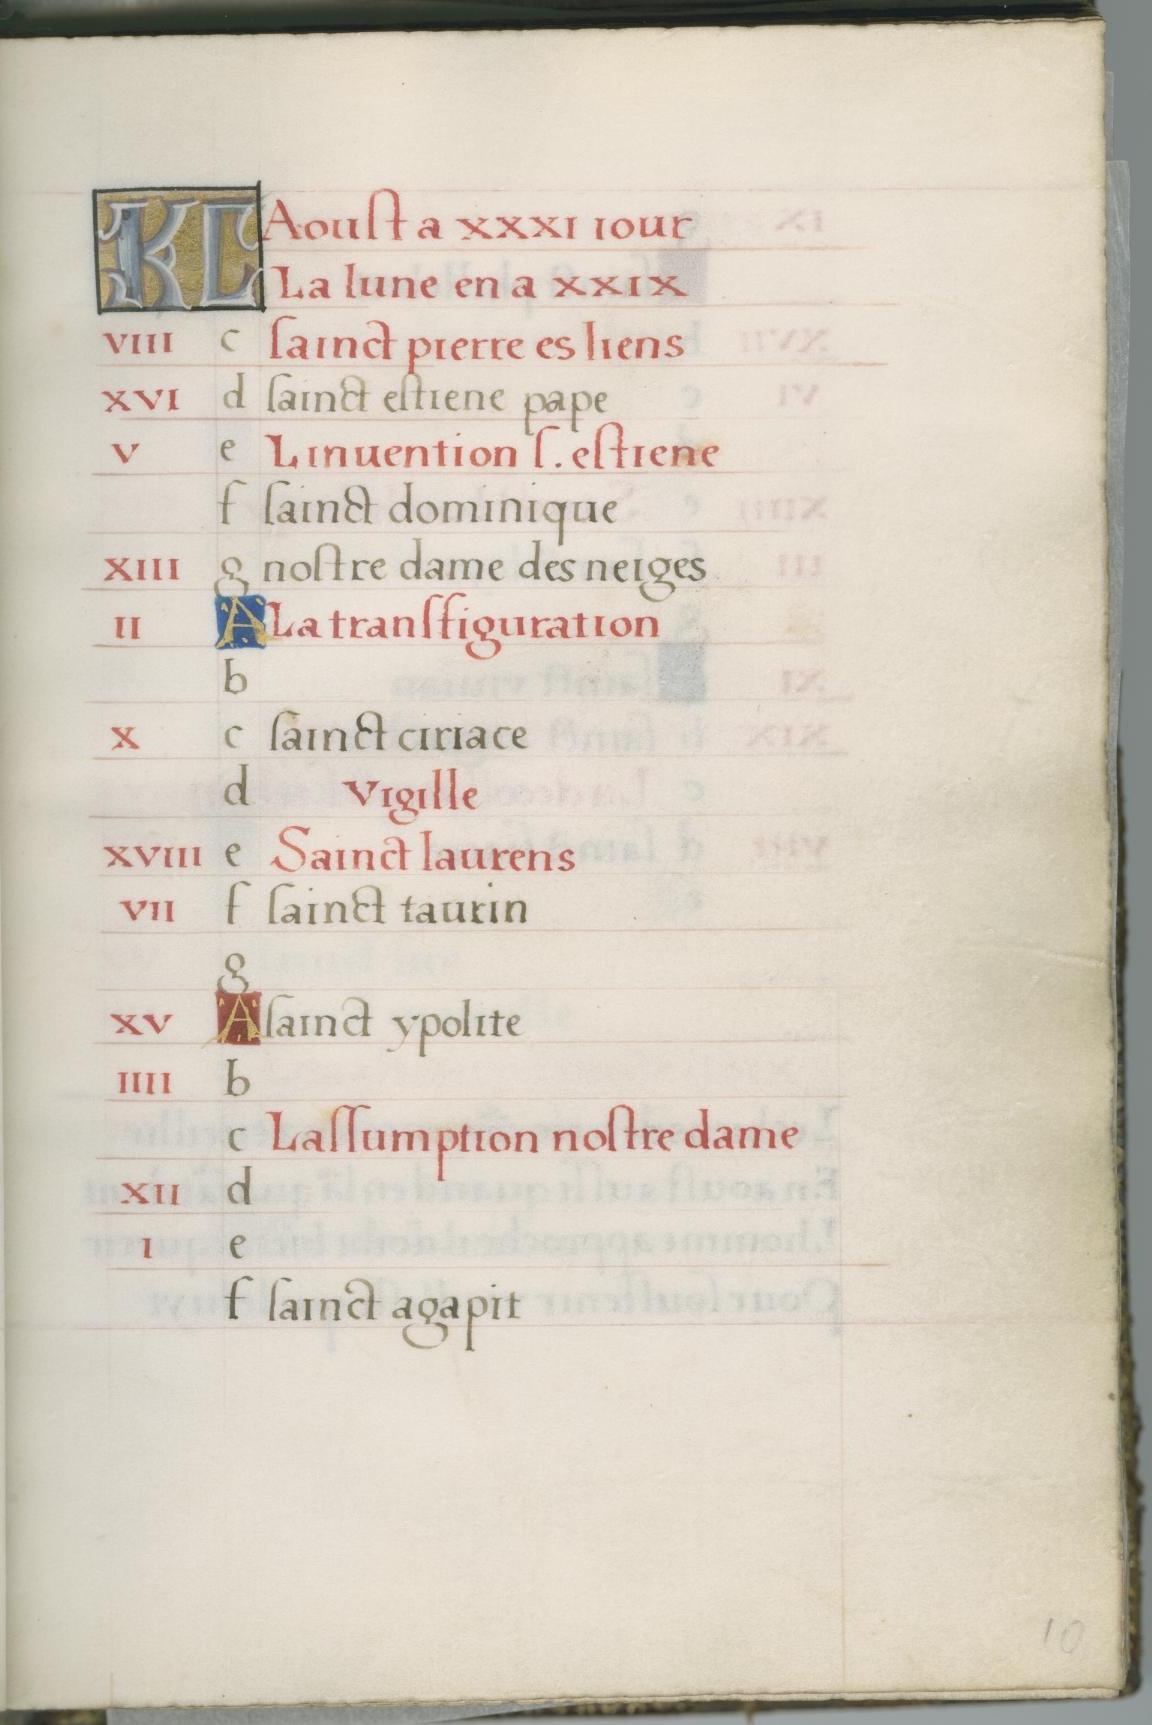 KL Aouſt a xxxi iour
La lune en a xxix
viii c ſainct pierre es liens
xvi d ſainct eſtiene pape
v e Linuention ſ. eſtiene
f ſainct dominique
xiii g noſtre dame des neiges
ii A La tranſfiguration
b
x c ſainct ciriace
d Vigille
xviii e Sainct laurens
vii f ſainct taurin
g
xv A ſainct ypolite
iiii b
c Laſſumption noſtre dame
xii d
i e
f ſainct agapit
10